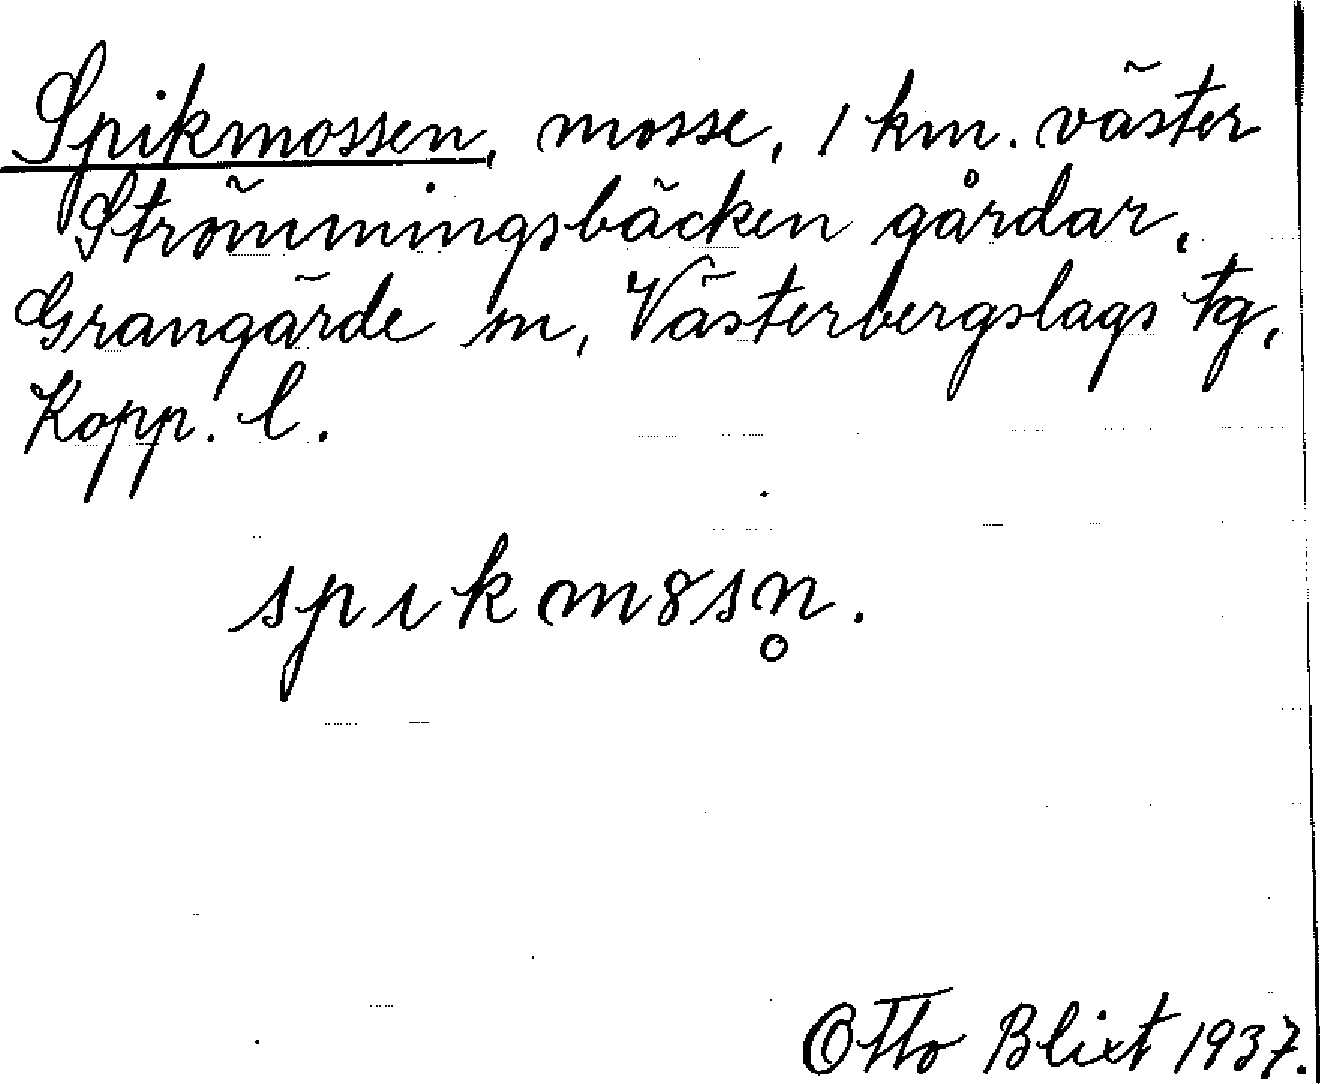 Spikmossen, mosse, 1 km. väster
Strömmingsbäcken gårdar,
Grangärde sn, Västerbergslags tg,
Kopp. l.
spıkm8sn̥.
Otto Blixt 1937.